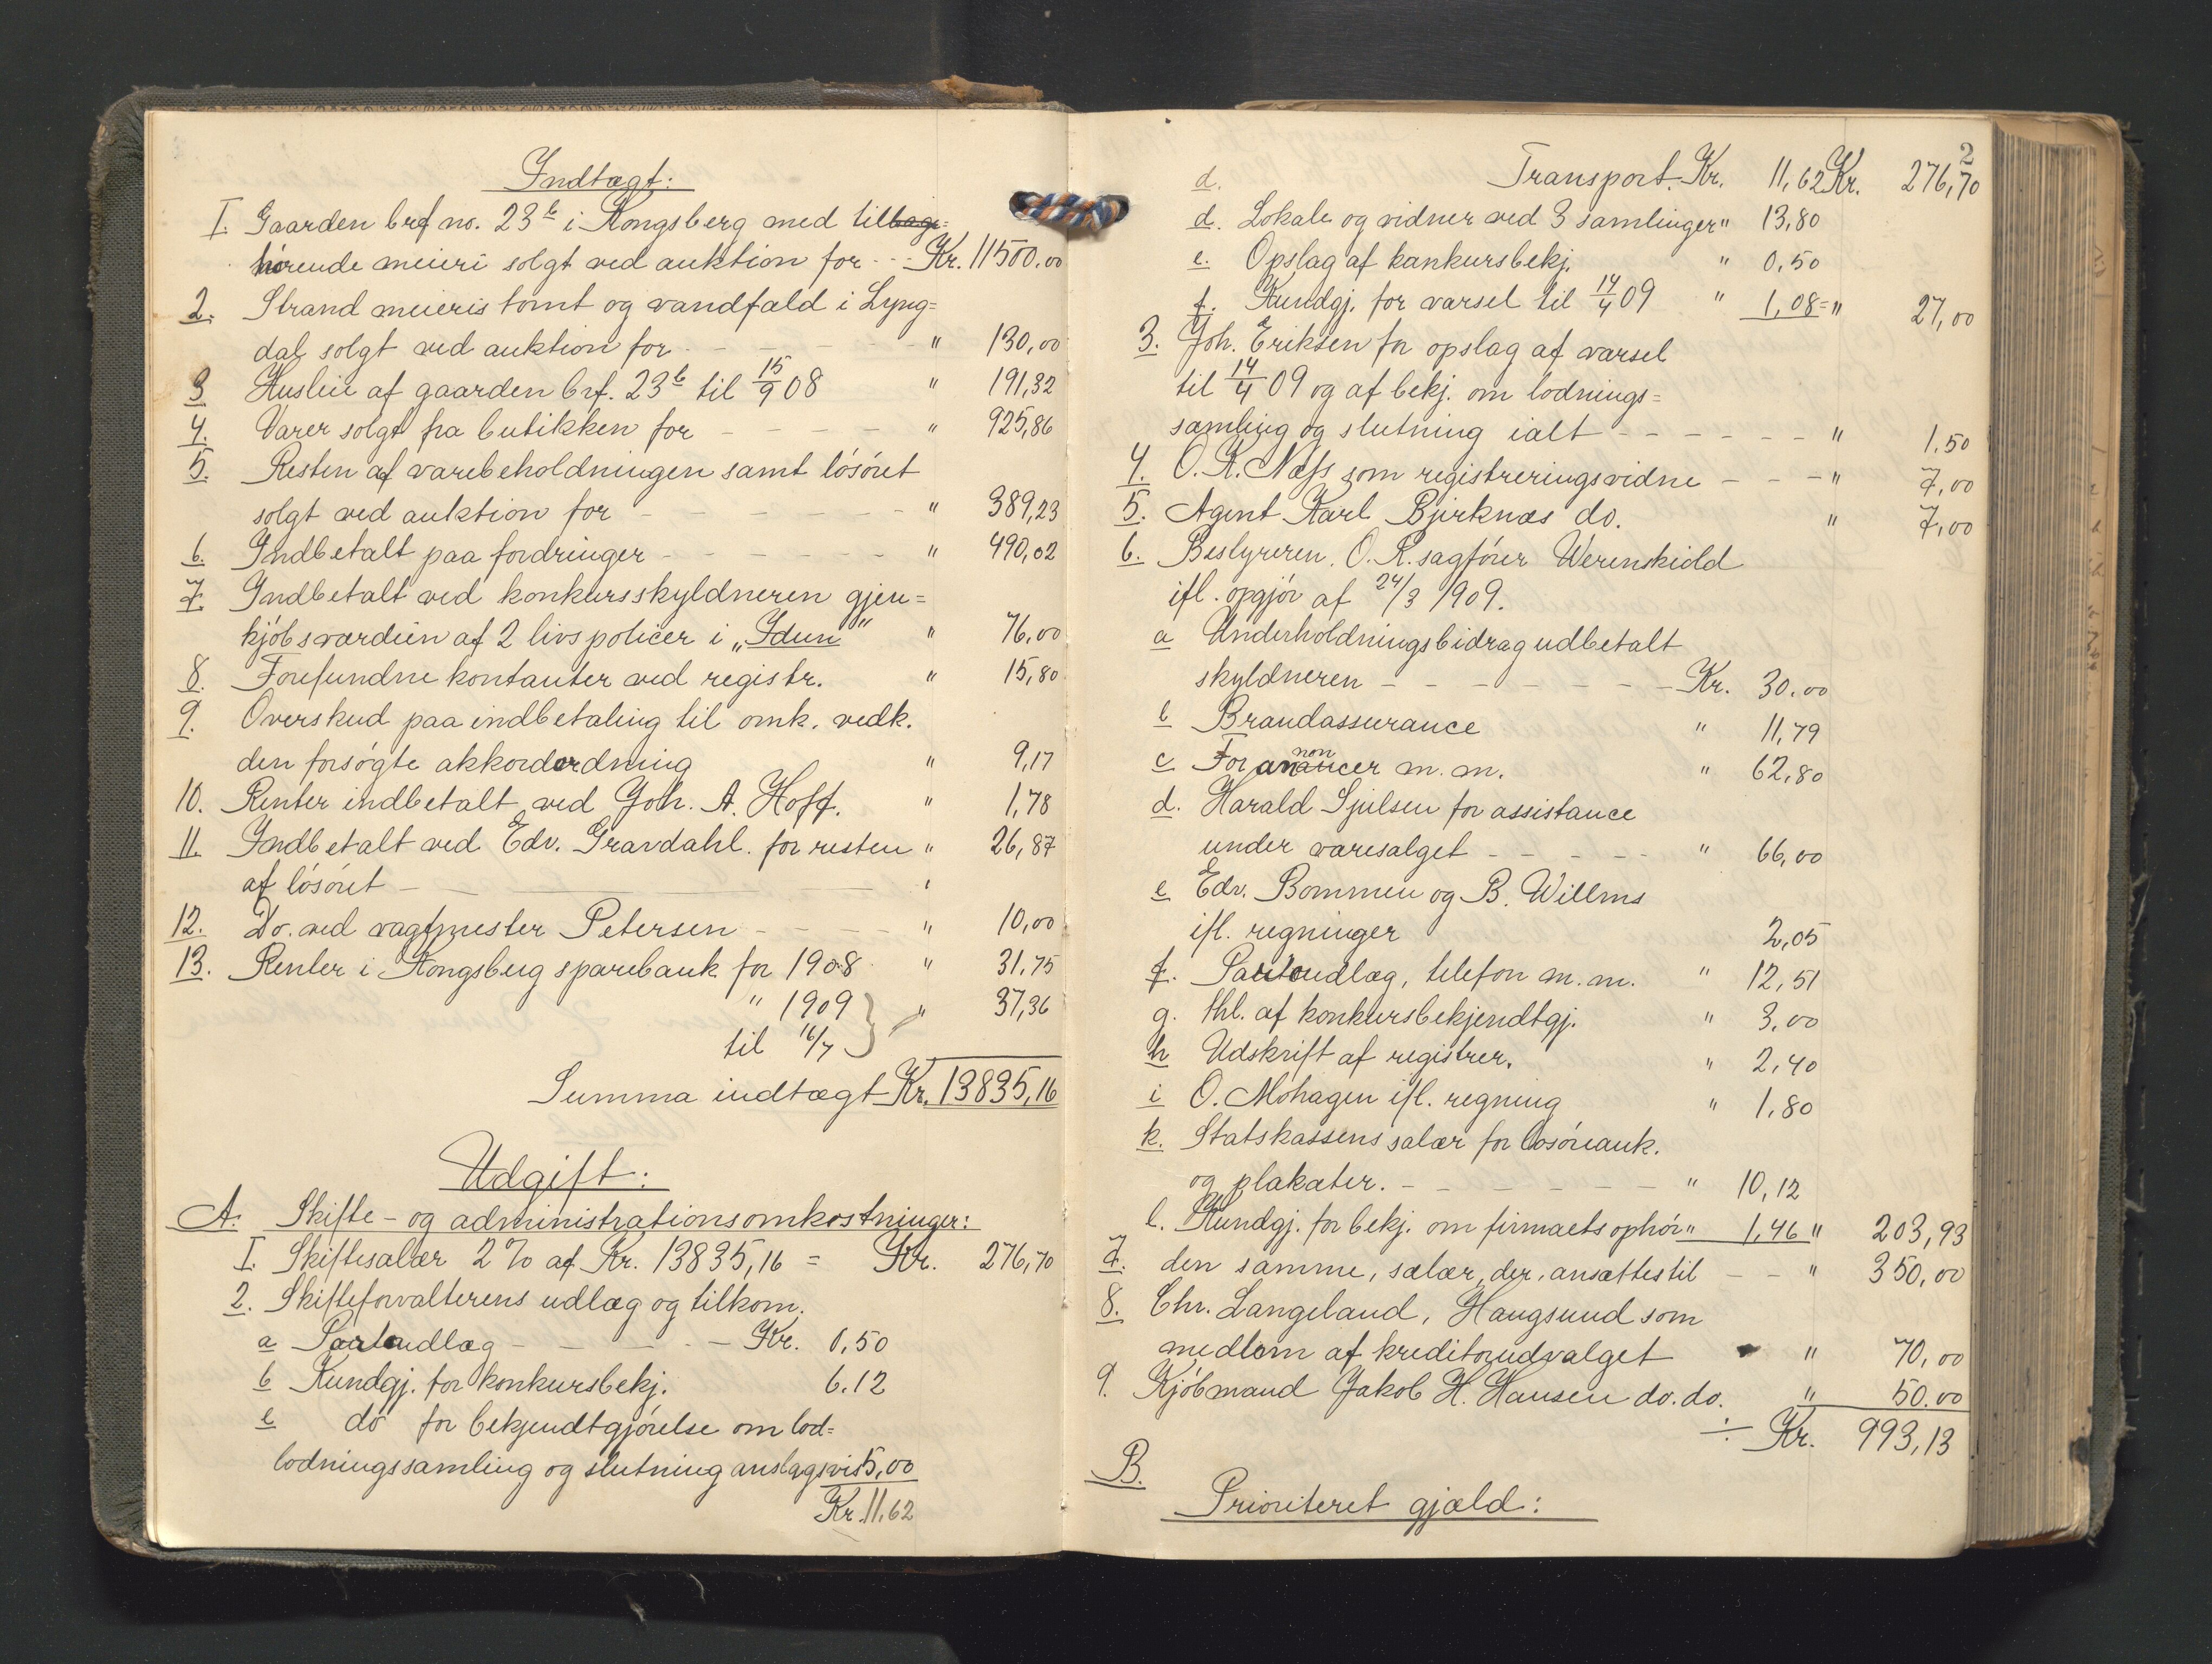 Indtægt:
I. Gaarden brf no. 23b i Kongsberg med tilbage=
hörende meieri solgt ved auktion for - - Kr. 11500.00
2. Strand meieris tomt og vandfald i Lyng=
dal solgt ved auktion for - - - - - - " 130,00
3 Husleie af gaarden brf. 23b til 15/9 08 " 191,32
4. Varer solgt fra butikken for - - - - - " 925,86
5. Resten af varebeholdningen samt lösöret
solgt ved auktion for - - - - - - - " 389,23
6. Indbetalt paa fordringer - - - - - - " 490,02
7. Indbetalt ved konkursskyldneren gjen=
kjöbsværdien af 2 livspolicer i „Idun" " 76,00
8. Forefundne kontanter ved registr. " 15,80
9. Overskud paa indbetaling til omk. vedk.
den forsögte akkordordning " 9,17
10. Renter indbetalt ved Joh. A. Hoff. " 1,78
11. Indbetalt ved Edv. Gravdahl. for resten " 26,87
af lösöret -
12. Do. ved vagtmester Petersen - - - - " 10,00
13. Renter i Kongsberg sparebank for 1908 " 31.75
" 1909 } " 37,36
til 16/7
Summa indtægt Kr. 13835,16
Udgift:
A. Skifte- og administrationsomkostninger:
I. Skiftesalær 2 % af Kr. 13835,16 = Kr. 276,70
2. Skifteforvalterens udlæg og tilkom.
a Portoudlæg - - - - - Kr. 0,50
b Kundgj. for konkursbekj. 6.12
c do for bekjendtgjörelse om lod=
lodningssamling og slutning anslagsvis 5,00
Kr. 11,62
2
d. Transport. Kr. 11,62 Kr. 276,70
d. Lokale og vidner ved 3 samlinger " 13,80
e. Opslag af konkursbekj. " 0,50
f. Kundgj. for varsel til 14/4 09 " 1,08 = " 27,00
3. Joh. Eriksen for opslag af varsel
til 14/4 09 og af bekj. om lodnings=
samling og slutning ialt - - - - - - " 1.50
4. O. K. Næss som registreringsvidne - - - " 7,00
5. Agent Karl Bjerknæs do. " 7,00
6. Bestyreren, O. R. sagförer Werenskiold
ifl. opgjör af 24/3 1909.
a Underholdningsbidrag udbetalt
skyldneren - - - - - - - Kr. 30.00
b Brandassurance " 11,79
c For annoncer m. m. " 62,80
d. Harald Sjulsen for assistance
under varesalget - - - - - " 66,00
e Edv. Bommen og B. Willms
ifl. regninger 2,05
f. Portoudlæg, telefon m. m. " 12,51
g. thl. af konkursbekjendtgj. " 3,00
h Udskrift af registrer. " 2,40
i O. Mohagen ifl. regning " 1,80
k. Statskassens salær for lösöreauk.
og plakater. - - - - - - - " 10,12
l. Kundgj. for bekj. om firmaets ophör " 1,46 " 203,93
7. den samme, salær, der ansættes til - - " 350,00
8. Chr. Langeland, Haugsund som
medlem af kreditorudvalget " 70,00
9. Kjöbmand Jakob H. Hansen do. do. " 50.00
÷ Kr. 993,13
B.
Prioriteret gjæld: